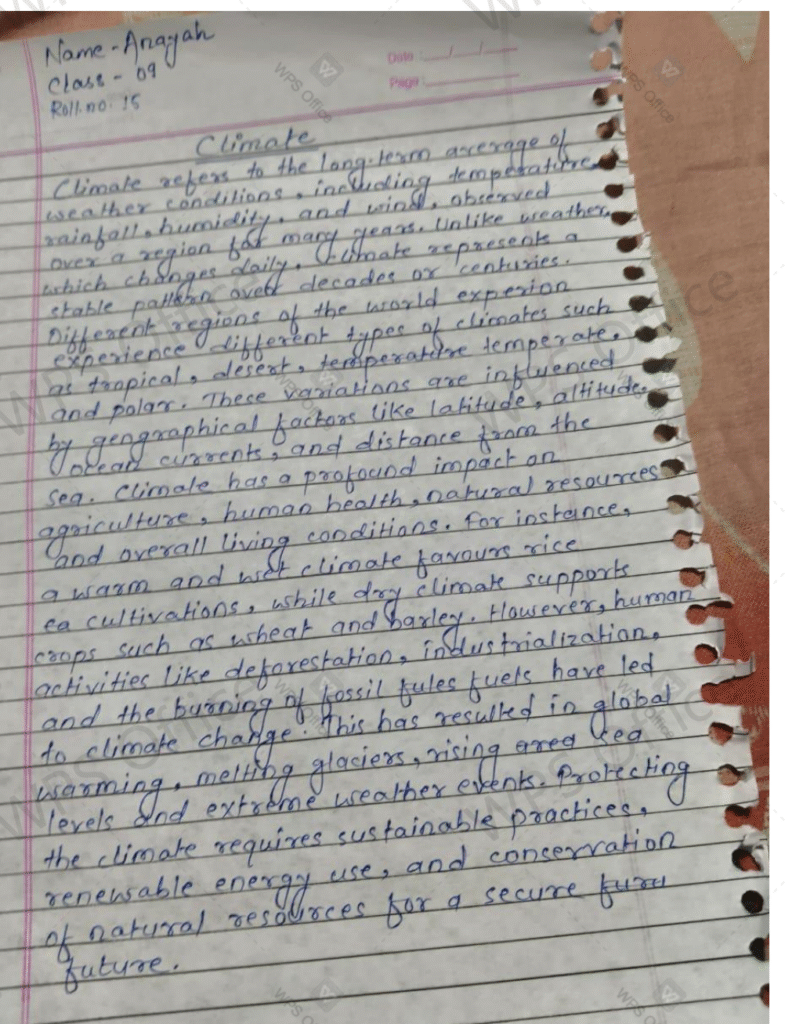 Name - Anayah
Class - 09
Roll.no. 15
Date : __/__/__
Page :
Climate
Climate refers to the long-term average of
weather conditions, including temperature,
rainfall, humidity, and wind, observed
over a region for many years. Unlike weather,
which changes daily, climate represents a
stable pattern over decades or centuries.
Different regions of the world experion
experience different types of climates such
as tropical, desert, temperature temperate,
and polar. These variations are influenced
by geographical factors like latitude, altitude,
ocean currents, and distance from the
sea. Climate has a profound impact on
agriculture, human health, natural resources
and overall living conditions. For instance,
a warm and wet climate favours rice
ea cultivations, while dry climate supports
crops such as wheat and barley. However, human
activities like deforestation, industrialization,
and the burning of fossil fules fuels have led
to climate change. This has resulted in global
warming, melting glaciers, rising ared sea
levels and extreme weather events. Protecting
the climate requires sustainable practices,
renewable energy use, and conservation
of natural resources for a secure furu
future.
WPS Office